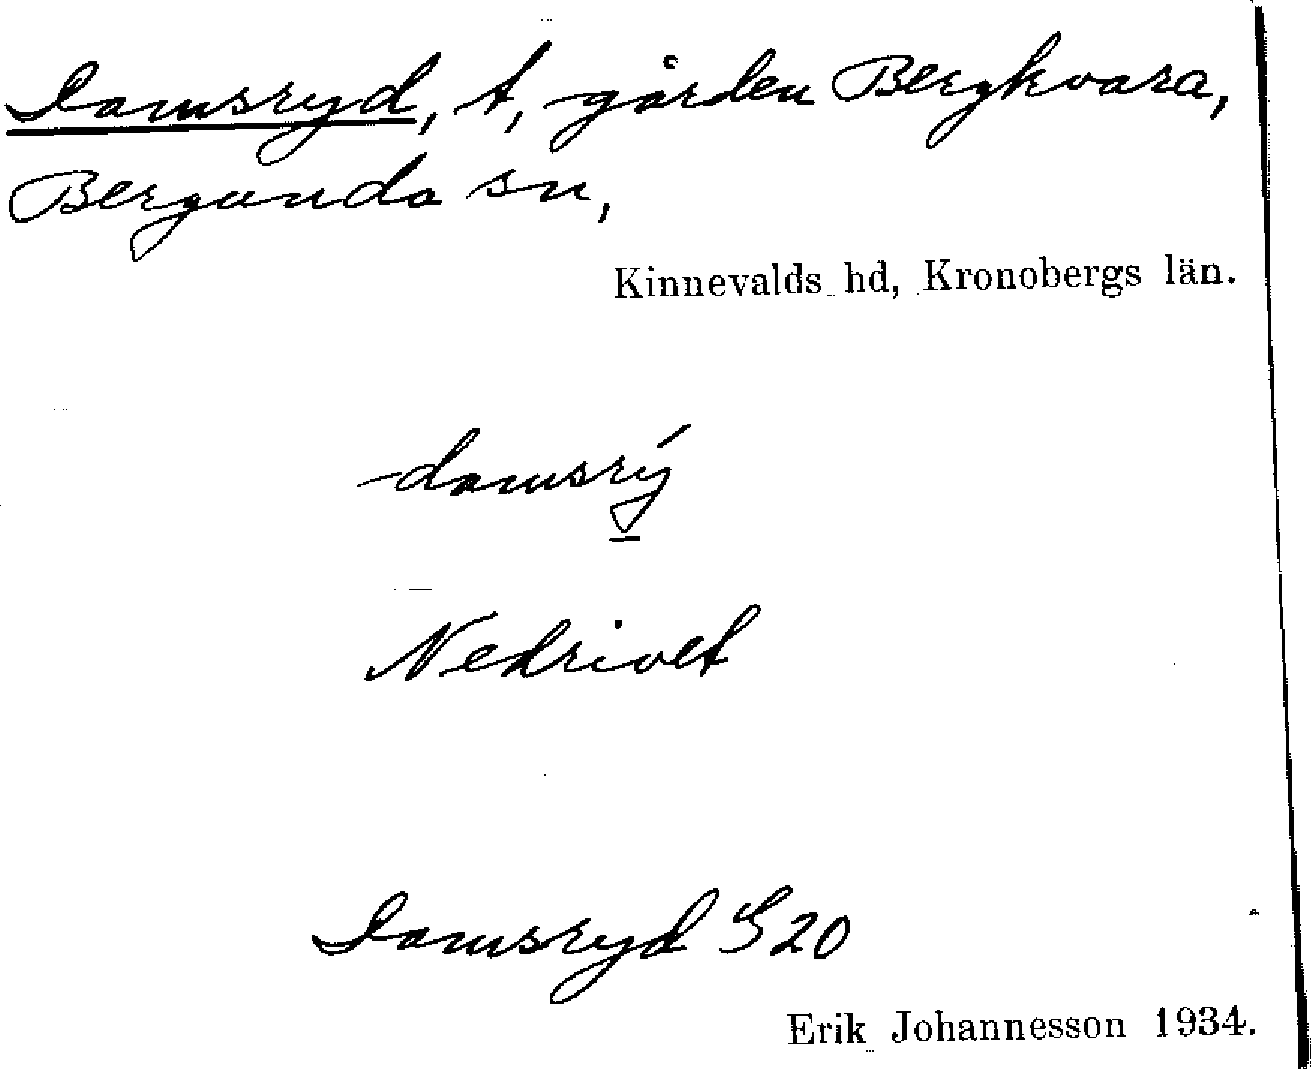 Damsryd, t, gården Bergkvara,
Bergunda sn,
Kinnevalds hd, Kronobergs län.
damsrý
Nedrivet
Damsryd S 20
Erik Johannesson 1934.